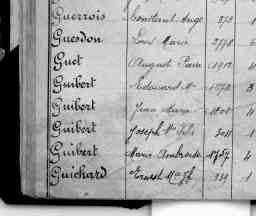 Guerrois Constant Ange 273 1
Guesdon Louis Marie 2778
Guet August Pierre 1912 4
Guibert Edouard Mie 1373 3
Guibert Jean Marie 1808 4
Guibert Joseph Mie Fils 3011 1
Guibert Marie Ambroise 1757 4
Guichard Ernest Mie Jh 239 1